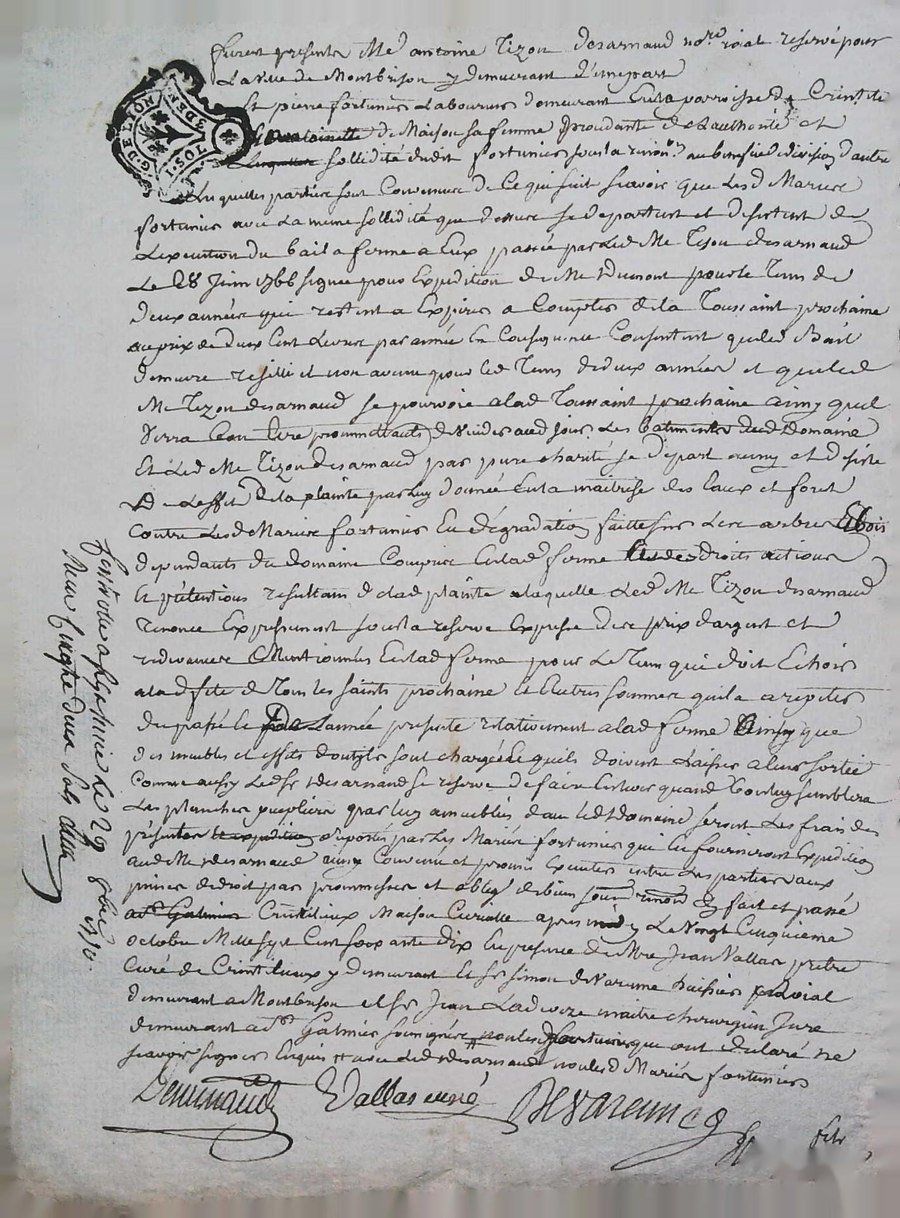 furent presents Me antoine Tizon desarnaud no.re roial reservé pour
La ville de Montbrison y demeurant d'une part
Et pierre fortunier Laboureur demeurant En la parroisse de
G.DE LION
3 DEN
1 SOL
de Maison sa femme procédante de Lauthorité et
sollidité dudit fortunier sous la renon.on au benefice de division d'autre
Lesquelles parties sont Convenues de Ce qui suit scavoir que Lesd Mariés
fortunier avec La meme sollidité que dessus se departent et desistent de
L'execution du bail a ferme a Eux passée par Led Me Tizon desarnaud
Le 28 Juin 1766 signee pour Expedition de Me Dumont pour le Tems de
deux années qui restent a Expirer a Compter de la Toussaint prochaine
au prix de deux Cent Livres par année En Consequence Consentent que led Bail
demeure resilié et non avenu pour led Tems de deux années et que led
Me Tizon desarnaud se pourvoie alad Toussaint prochaine ainsy quil
Verra bon Etre promettants de vuider aud jour Les batiments dud Domaine
Et Led Me Tizon desarnaud par pure charité se depart aussy et desiste
De Leffet de la plainte par luy donnée En la maitrise des Eaux et foret
Contre Lesd Mariés fortunier En dégradation faitte sur Les arbres Et bois
dependants du domaine Compris En lad ferme droits actions
Et prétentions resultans de lad plainte a laquelle Led Me Tizon desarnaud
renonce Expressement sous la reserve Expresse des prix d'argent et
redevances Mentionnées En lad ferme pour Le Tems qui doit Echoir
a lad fete de Tous les saints prochaine Et autres sommes quil a a repeter
du passé Et de L'année presente relativement a lad ferme Ainsy que
des meubles et effets d'outils sont chargée Et quils doivent Laisser a leur sortie
Comme aussy Led Sr desarnaud se reserve de faire Enlever quand bon luy semblera
Les planches par luy dans led domaine seront Les frais des
présentes suportés par Les Mariés fortunier qui En fourniront Expédition
aud Me desarnaud ainsy Convenu et promis Executer entre Les parties aux
peines de droit par promesses et oblig. de biens renon. fait et passé
Maison Curialle apres midy Le Vingt Cinquieme
octobre Mille sept Cent soixante dix En presence de Mre Jean Vallas pretre
Curé de y demeurant Et Sr simon de Varenne huissier roial
demeurant a Montbrison et Sr Jean maitre chirurgien Juré
demeurant a St Galmier soussignés que ont declaré ne
scavoir signer Enquis avec Led desarnaud non lesd Mariés fortunier
Desarnaud Vallas curé Devarenne
Controllé a le 29 8bre 1770.
Reçu Vingt deux sols